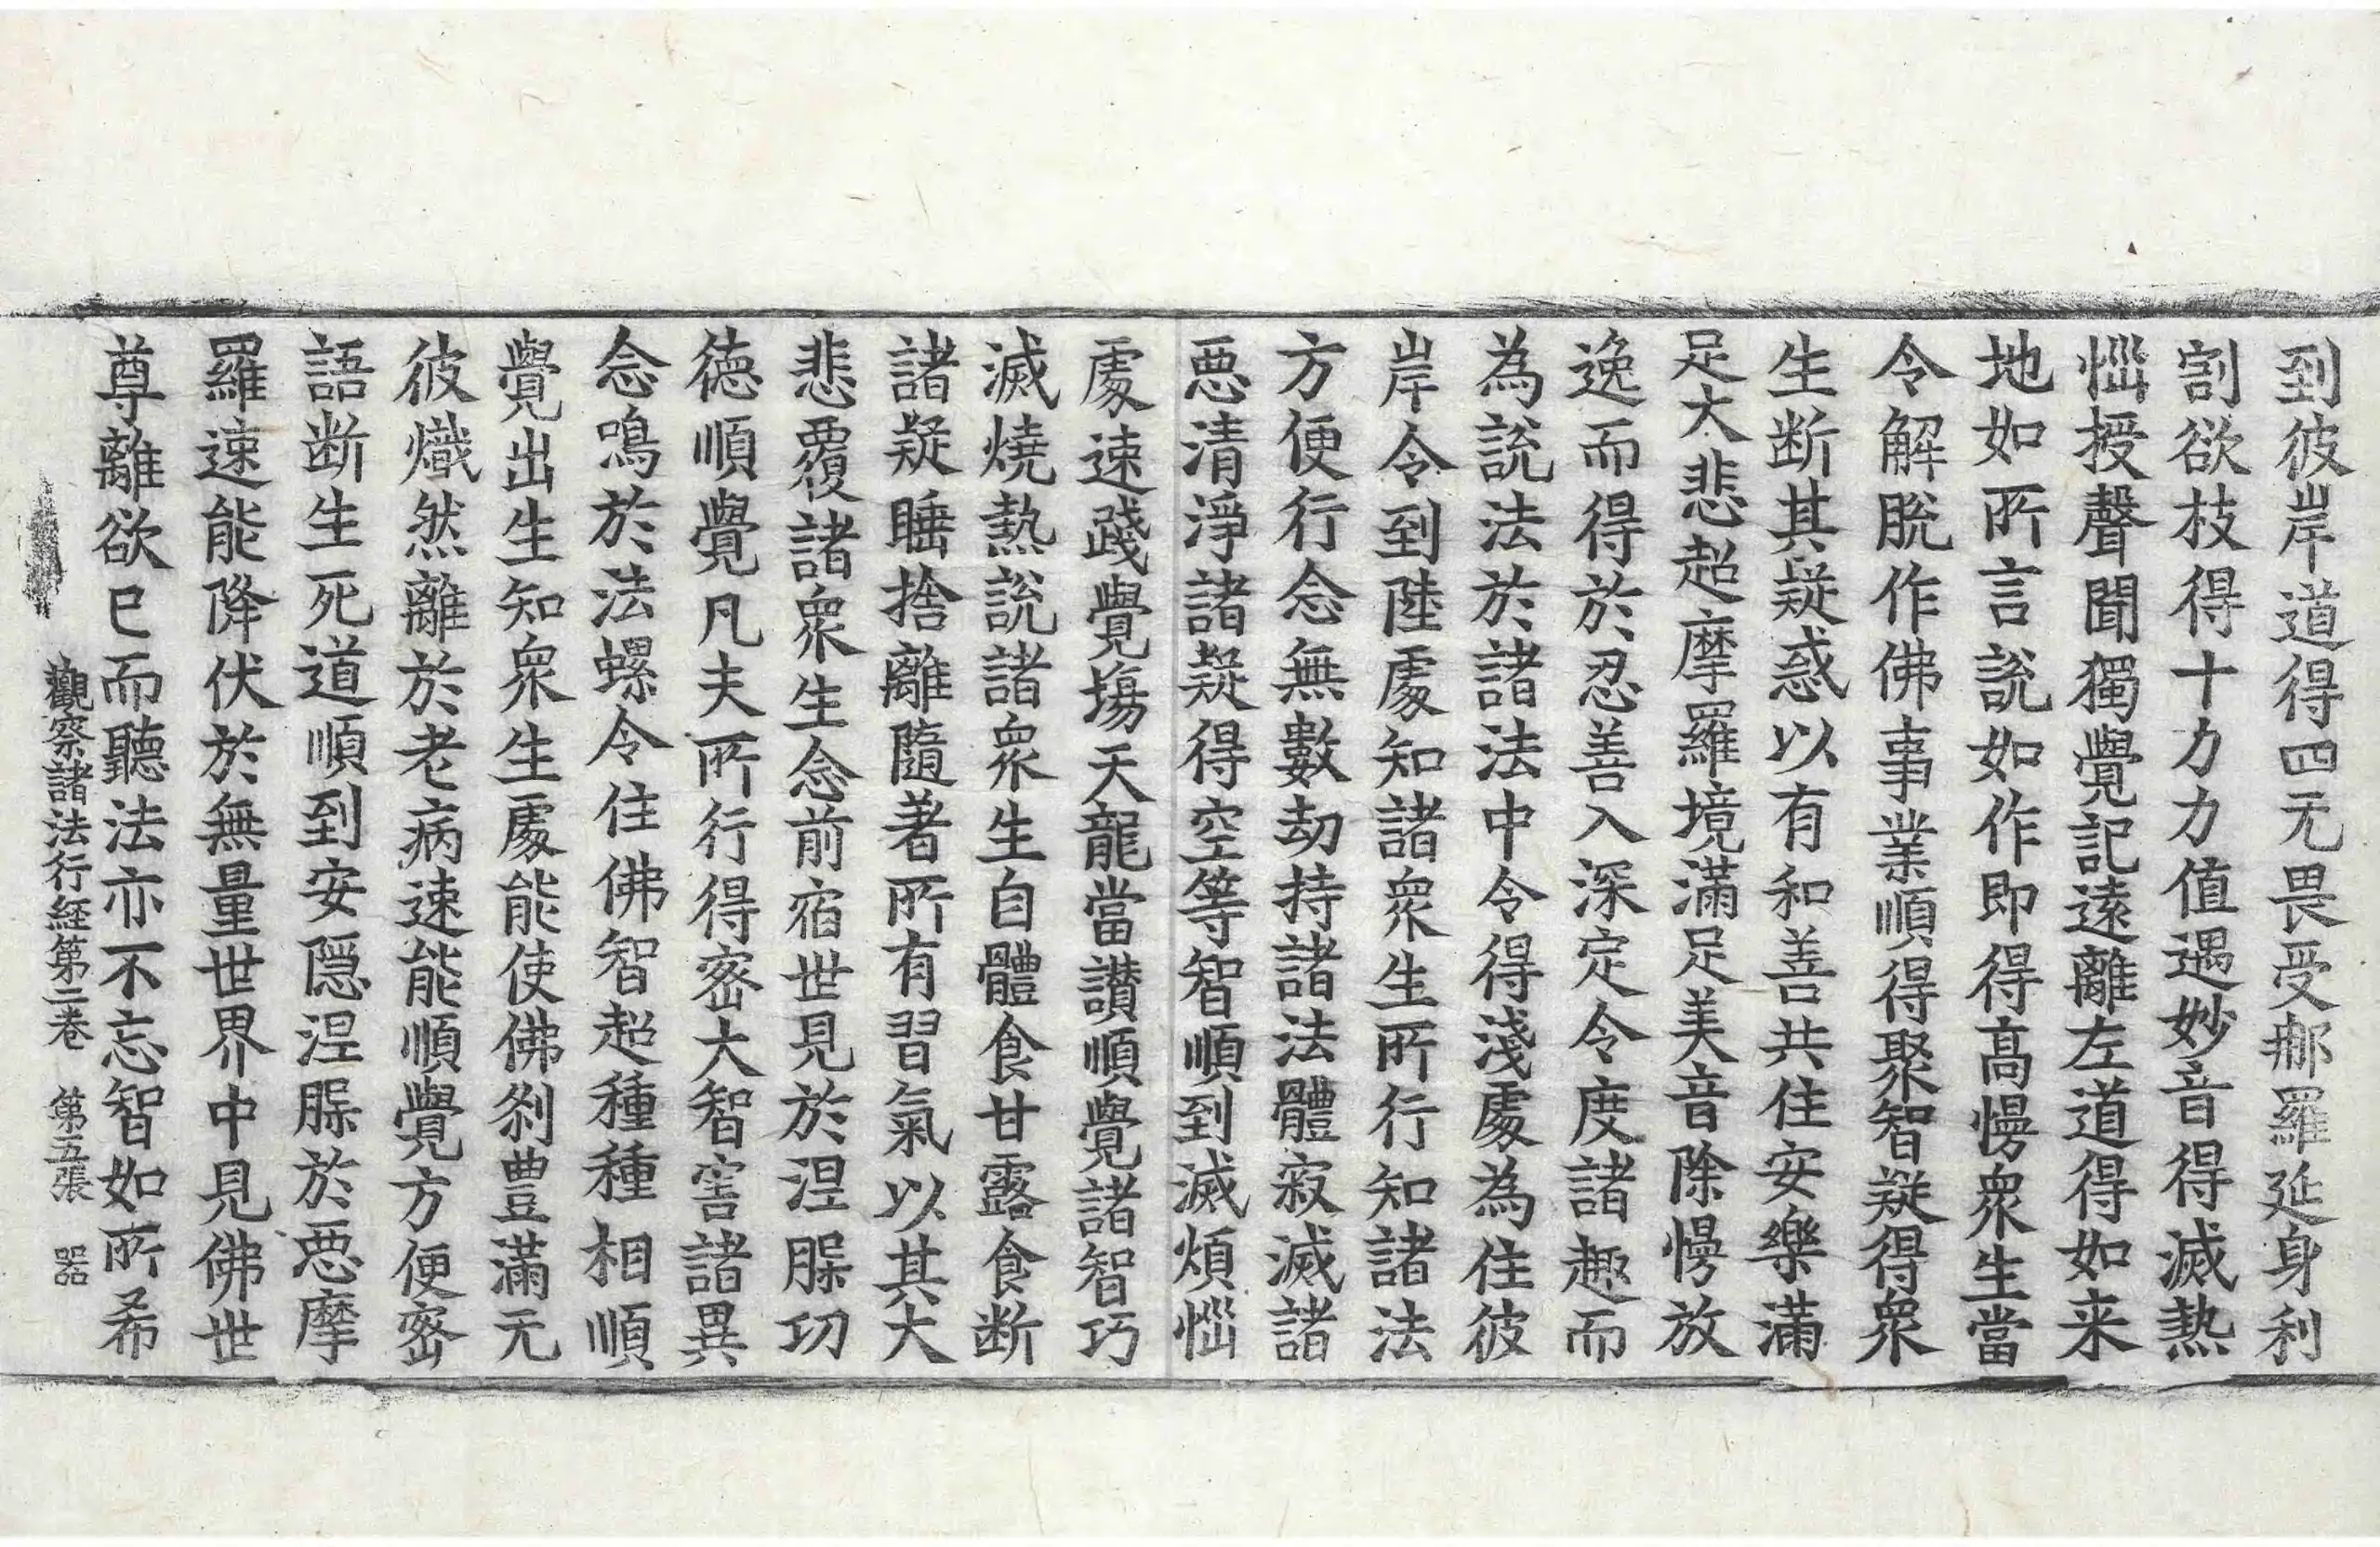 到彼岸道得四无畏受𨚗羅延身利
割欲枝得十力力值遇妙音得滅熱
惱授聲聞獨覺記遠離左道得如来
地如所言說如作即得高慢衆生當
令解脫作佛事業順得聚智疑得衆
生断其疑惑以有和善共住安樂滿
足大悲超摩羅境滿足美音除慢放
逸而得於忍善入深定令度諸趣而
為說法於諸法中令得淺處為住彼
岸令到陸處知諸衆生所行知諸法
方便行念無數劫持諸法體寂滅諸
惡清淨諸疑得空等智順到滅煩惱
處速踐覺塲天龍當讃順覺諸智巧
滅燒熱說諸衆生自體食甘露食断
諸疑睡捨離隨著所有習氣以其大
悲覆諸衆生念前宿世見於涅槃功
徳順覺凡夫所行得密大智害諸異
念鳴於法螺令住佛智超種種相順
覺出生知衆生處能使佛刹豊滿元
彼熾然離於老病速能順覺方便密
語断生死道順到安隱涅槃於惡摩
羅速能降伏於無量世界中見佛世
尊離欲已而聽法亦不忘智如所希
觀察諸法行経第二卷　第五張　器